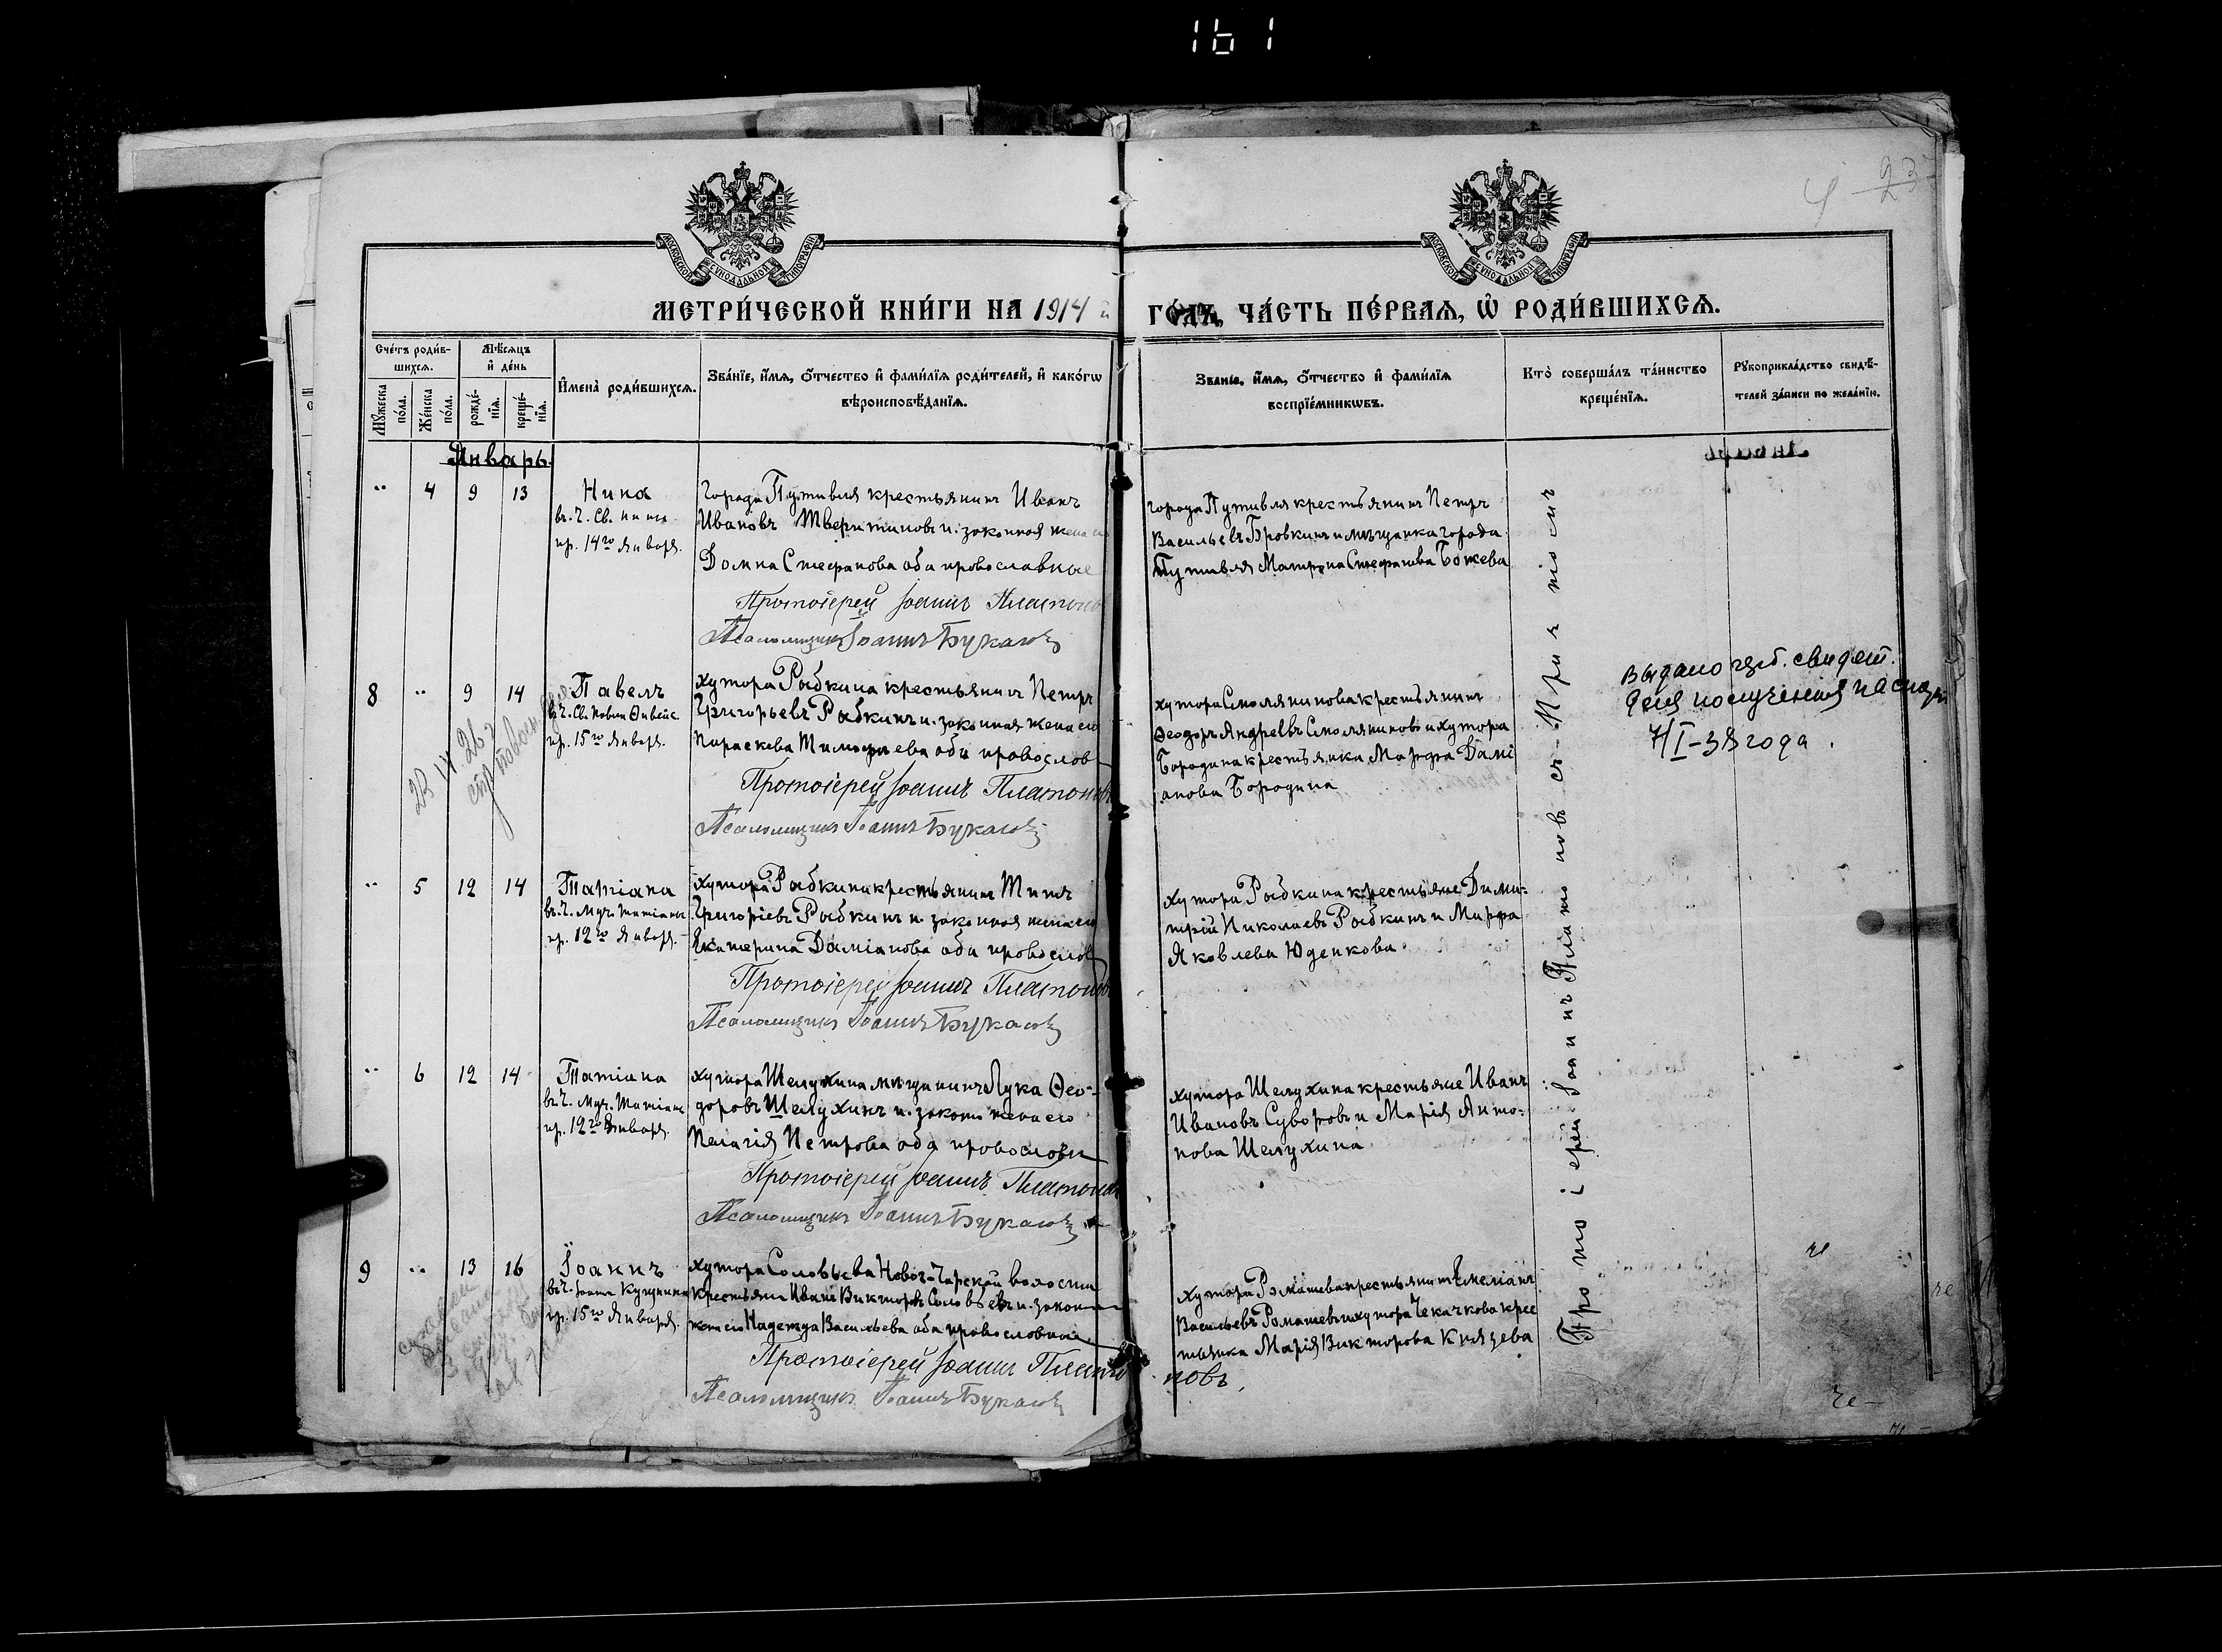 161
237
МОСКОВСКОЙ СѴНОДАЛЬНОЙ ТИПОГРАФІИ
МОСКОВСКОЙ СѴНОДАЛЬНОЙ ТИПОГРАФІИ
МЕТРИ́ЧЕСКОЙ КНИ́ГИ НА 1914 й ГО́ДЪ, ЧА́СТЬ ПЕ́РВАѦ, Ѽ РОДИ́ВШИХСѦ.
Сче́тъ роди́в-
шихсѧ.
Мꙋ́жеска
по́ла.
Же́нска
по́ла.
Мѣ́сѧцъ
и҆ де́нь
рожде́-
нїѧ.
креще́-
нїѧ.
И҆мена̀ роди́вшихсѧ.
Зва́нїе, и҆́мѧ, ѻ҆́тчество и҆ фами́лїѧ роди́телей, и҆ како́гѡ
вѣроисповѣ́данїѧ.
Зва́нїе, и҆́мѧ, ѻ҆́тчество и҆ фами́лїѧ
воспрїе́мникѡвъ.
Кто̀ соверша́лъ та́инство
креще́нїѧ.
Рꙋкоприкла́дство свидѣ́-
телей за́писи по жела́нїю.
Январь.
" 4 9 13 Нина
въ ч. Св. Нины
пр. 14го Января.
города Путивля крестьянинъ Иванъ
Ивановъ Тверитиновъ и законная жена его
Домна Стефанова оба православные
Протоіерей Іоаннъ Платонов
Псаломщикъ Іоаннъ Букаловъ
города Путивля крестьянинъ Петръ
Васильевъ Бровкинъ и мѣщанка города
Путивля Матрона Стефанова Божева
8 " 9 14 Павелъ
въ ч. Св. Павла Ѳивейс.
пр. 15го Января.
хутора Рябкина крестьянинъ Петръ
Григорьевъ Рябкинъ и законная жена его
Параскева Тимофеева оба православ
Протоіерей Іоаннъ Платонов
Псаломщикъ Іоаннъ Букаловъ
хутора Смолянинова крестьянинъ
Ѳеодоръ Андреевъ Смоляниновъ и хутора
Бородина крестьянка Марфа Дамі
анова Бородина
выдано свидет.
для получения паспорт
7/I-38 года.
" 5 12 14 Татіана
въ ч. муч. Татіаны
пр. 12го Января.
хутора Рябкина крестьянинъ Титъ
Григоріевъ Рябкинъ и законная жена его
Екатерина Даміанова оба православ
Протоіерей Іоаннъ Платонов
Псаломщикъ Іоаннъ Букаловъ
хутора Рябкина крестьяне Дими-
трій Николаевъ Рябкинъ и Марфа
Яковлева Юденкова
" 6 12 14 Татіана
въ ч. муч. Татіаны
пр. 12го Января.
хутора Шелухина мѣщанинъ Лука Ѳео-
доровъ Шелухинъ и законн жена его
Пелагія Петрова оба православн
Протоіерей Іоаннъ Платонов
Псаломщикъ Іоаннъ Букаловъ
хутора Шелухина крестьяне Иванъ
Ивановъ Суворовъ и Марія Анто-
нова Шелухина
9 " 13 16 Іоаннъ
въ ч. Іоанна Кущника
пр. 15го Января.
хутора Соловьева Новос-Чарской волости
крестьянинъ Иванъ Викторовъ Соловьевъ и закон
жена его Надежда Васильева оба православные
Протоіерей Іоаннъ Платоновъ
Псаломщикъ Іоаннъ Букаловъ
хутора Ромашева крестьянинъ Емеліанъ
Васильевъ Ромашевъ и хутора Чекачкова крес
тьянка Марія Викторова Князева
Протоіерей Іоаннъ Платоновъ съ